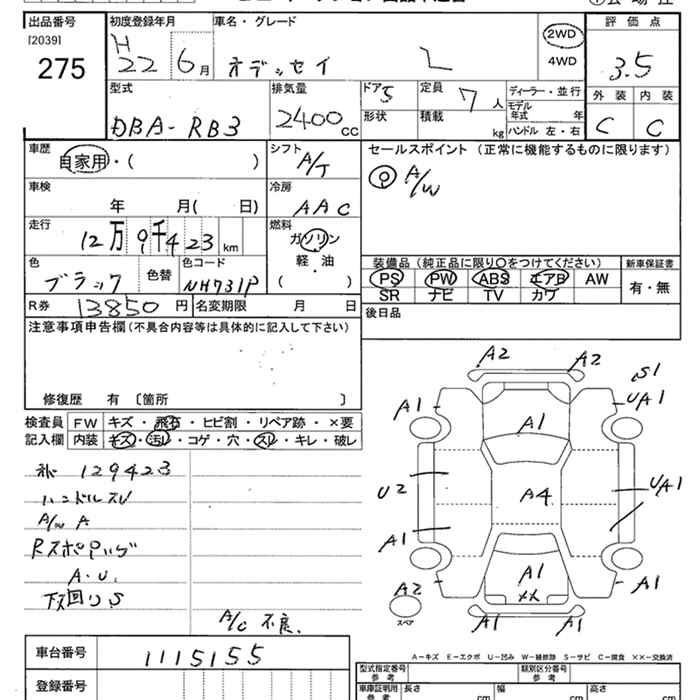 出品番号 初度登録年月 車名・グレード 2WD 評価点
[2039] H
275 22 6月 オデッセイ L 4WD 3.5
型式 排気量 ドア 5 定員 7人 ディーラー・並行 外装 内装
モデル年式 年
DBA-RB3 2400cc 形状 積載 kg ハンドル 左・右 C C
車歴 自家用・( ) シフト A/T セールスポイント (正常に機能するものに限ります)
車検 年 月( 日) 冷房 AAC A/W
走行 12万9千423km 燃料 ガソリン 軽・油 ( )
色 ブラック 色替 色コード NH731P
装備品 (純正品に限り○をつけてください) 新車保証書
PS PW ABS エアB AW 有・無
SR ナビ TV カワ
R券 13850円 名変期限 月 日 後日品
注意事項申告欄(不具合内容等は具体的に記入して下さい)
修復歴 有 [箇所 ]
検査員 FW キズ・飛石・ヒビ割・リペア跡・×要
記入欄 内装 キズ・汚レ・コゲ・穴・スレ・キレ・破レ
129423
ハンドルスレ
A/W A
Rスポイリング
A.U.
下回りS
A/C不良
A2 A2 S1
A1 A1 UA1
U2 A4 UA1
A1
A2 A1 A1
スペア ××
A1 A1
A－キズ E－エクボ U－凹み W－補修跡 S－サビ C－腐食 ××－交換済
車台番号 1115155
登録番号
型式指定番号 参考 類別区分番号 参考
車庫証明用 参考 長さ cm 幅 cm 高さ cm